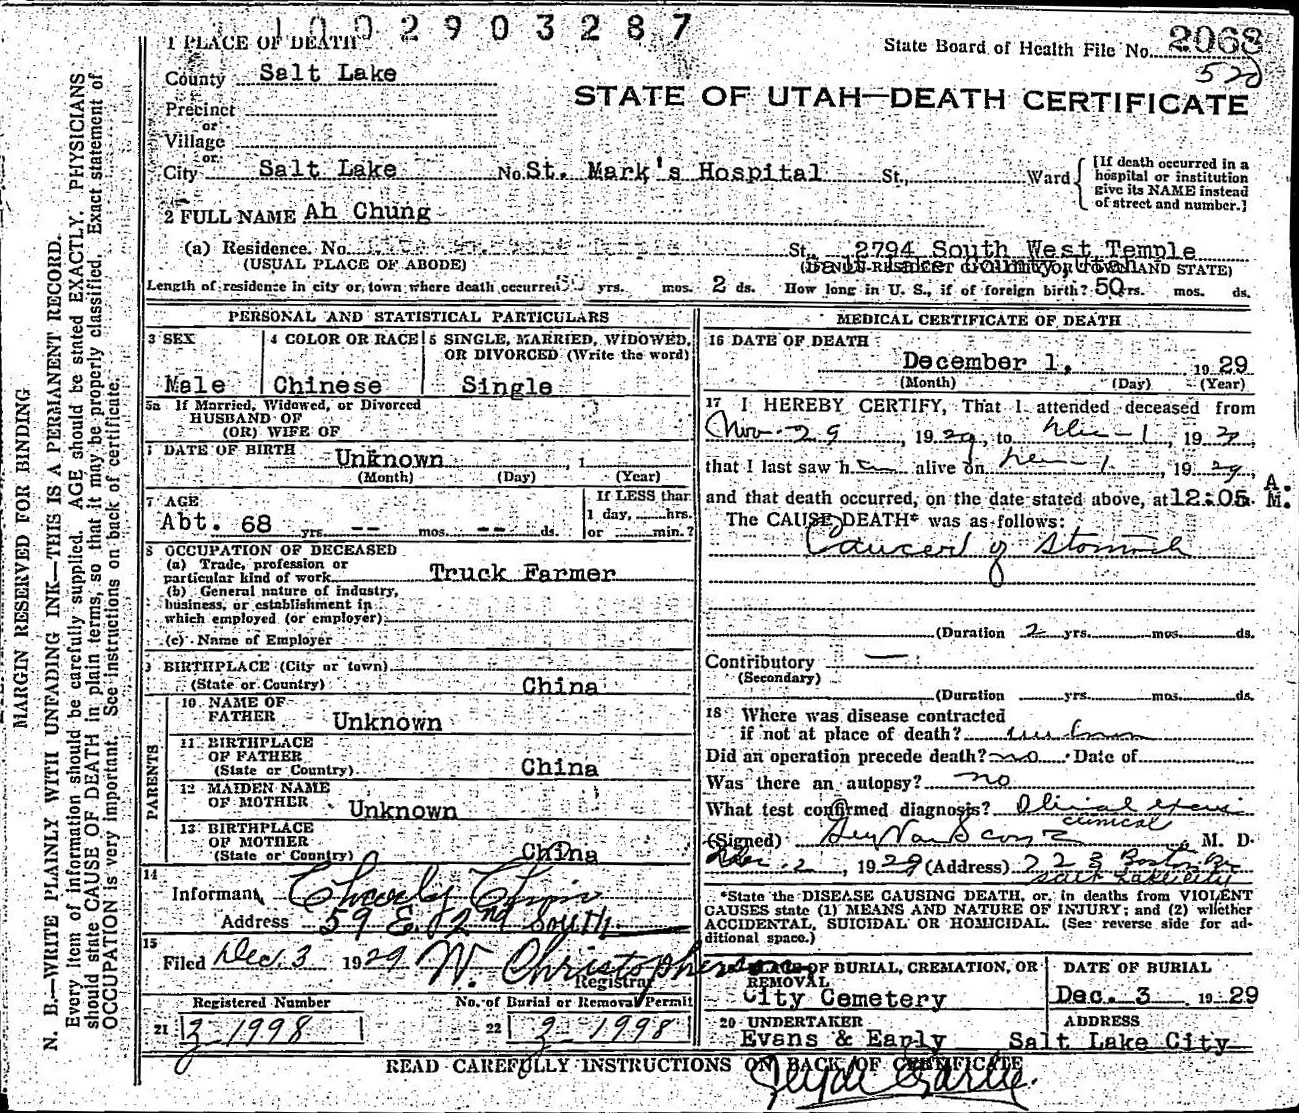 1 1 0 0 2 9 0 3 2 8 7
State Board of Health File No. 2068
520
1 PLACE OF DEATH
County Salt Lake
STATE OF UTAH—DEATH CERTIFICATE
Precinct
or
Village
or
City Salt Lake No. St. Mark's Hospital St., Ward
[If death occurred in a hospital or institution give its NAME instead of street and number.]
2 FULL NAME Ah Chung
(a) Residence. No. St., 2794 South West Temple
(USUAL PLACE OF ABODE) Salt Lake County, Utah
(IF NON-RESIDENT GIVE CITY OR TOWN AND STATE)
Length of residence in city or town where death occurred yrs. mos. 2 ds. How long in U. S., if of foreign birth? 50 yrs. mos. ds.
PERSONAL AND STATISTICAL PARTICULARS
3 SEX
Male
4 COLOR OR RACE
Chinese
5 SINGLE, MARRIED, WIDOWED, OR DIVORCED (Write the word)
Single
5a If Married, Widowed, or Divorced
HUSBAND OF
(OR) WIFE OF
DATE OF BIRTH Unknown , 1
(Month) (Day) (Year)
7 AGE
Abt. 68 yrs. -- mos. -- ds.
If LESS than
1 day, hrs.
or min.?
8 OCCUPATION OF DECEASED
(a) Trade, profession or
particular kind of work Truck Farmer
(b) General nature of industry,
business, or establishment in
which employed (or employer)
(c) Name of Employer
9 BIRTHPLACE (City or town)
(State or Country) China
PARENTS
10 NAME OF
FATHER Unknown
11 BIRTHPLACE
OF FATHER
(State or Country) China
12 MAIDEN NAME
OF MOTHER Unknown
13 BIRTHPLACE
OF MOTHER
(State or Country) China
14
Informant Charly Chin
Address 59 E. 2nd South
15
Filed Dec. 3 1929 W. Christopherson
Registrar
Registered Number
21 z 1998
No. of Burial or Removal Permit
22 z 1998
MEDICAL CERTIFICATE OF DEATH
16 DATE OF DEATH
December 1, 1929
(Month) (Day) (Year)
17 I HEREBY CERTIFY, That I attended deceased from
Nov. 29, 1929, to Dec-1, 1929,
that I last saw him alive on Dec-1, 1929,
and that death occurred, on the date stated above, at 12:05 A. M.
The CAUSE DEATH* was as follows:
Cancer of Stomach
(Duration 2 yrs. mos. ds.
Contributory —
(Secondary)
(Duration yrs. mos. ds.
18 Where was disease contracted
if not at place of death? unknown
Did an operation precede death? no Date of
Was there an autopsy? no
What test confirmed diagnosis? Clinical
clinical
(Signed) Guy Van Scoyoc M. D.
Dec. 2, 1929 (Address) 223 Boston Bl
Salt Lake City
*State the DISEASE CAUSING DEATH, or, in deaths from VIOLENT
CAUSES state (1) MEANS AND NATURE OF INJURY; and (2) whether
ACCIDENTAL, SUICIDAL OR HOMICIDAL. (See reverse side for ad-
ditional space.)
PLACE OF BURIAL, CREMATION, OR
REMOVAL
City Cemetery
DATE OF BURIAL
Dec. 3 1929
20 UNDERTAKER
Evans & Early
ADDRESS
Salt Lake City
READ CAREFULLY INSTRUCTIONS ON BACK OF CERTIFICATE
MARGIN RESERVED FOR BINDING
N. B.—WRITE PLAINLY WITH UNFADING INK—THIS IS A PERMANENT RECORD.
Every item of information should be carefully supplied. AGE should be stated EXACTLY. PHYSICIANS
should state CAUSE OF DEATH in plain terms, so that it may be properly classified. Exact statement of
OCCUPATION is very important. See instructions on back of certificate.